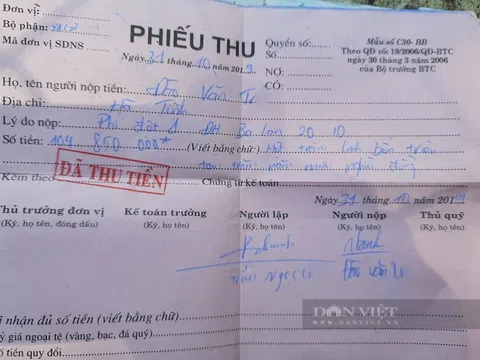 Đơn vị:
Bộ phận:
Mã đơn vị SDNS
PHIẾU THU
Ngày 31 tháng 10 năm 2019
Quyển số:
Số:
NỢ:
CÓ:
Mẫu số C30- BB
Theo QĐ số: 19/2006/QĐ-BTC
ngày 30 tháng 3 năm 2006
của Bộ trưởng BTC
Họ, tên người nộp tiền: Đào Văn
Địa chỉ: Hà Tĩnh
Lý do nộp: Phí đợt 1 ĐH Ba Lan 20 10
Số tiền: 104 850 000đ (Viết bằng chữ): Một trăm linh bốn triệu
tám trăm năm mươi nghìn đồng
ĐÃ THU TIỀN
Kèm theo
Chứng từ kế toán
Ngày 31 tháng 10 năm 2019
Thủ trưởng đơn vị
(Ký, họ tên, đóng dấu)
Kế toán trưởng
(Ký, họ tên)
Người lập
(Ký, họ tên)
Người nộp
(Ký, họ tên)
Thủ quỹ
(Ký, họ tên)
Trần Ngọc
Đào Văn
nhận đủ số tiền (viết bằng chữ)
giá ngoại tệ (vàng, bạc, đá quý)
tiền quy đổi
DÂN VIỆT
DANVIET.VN